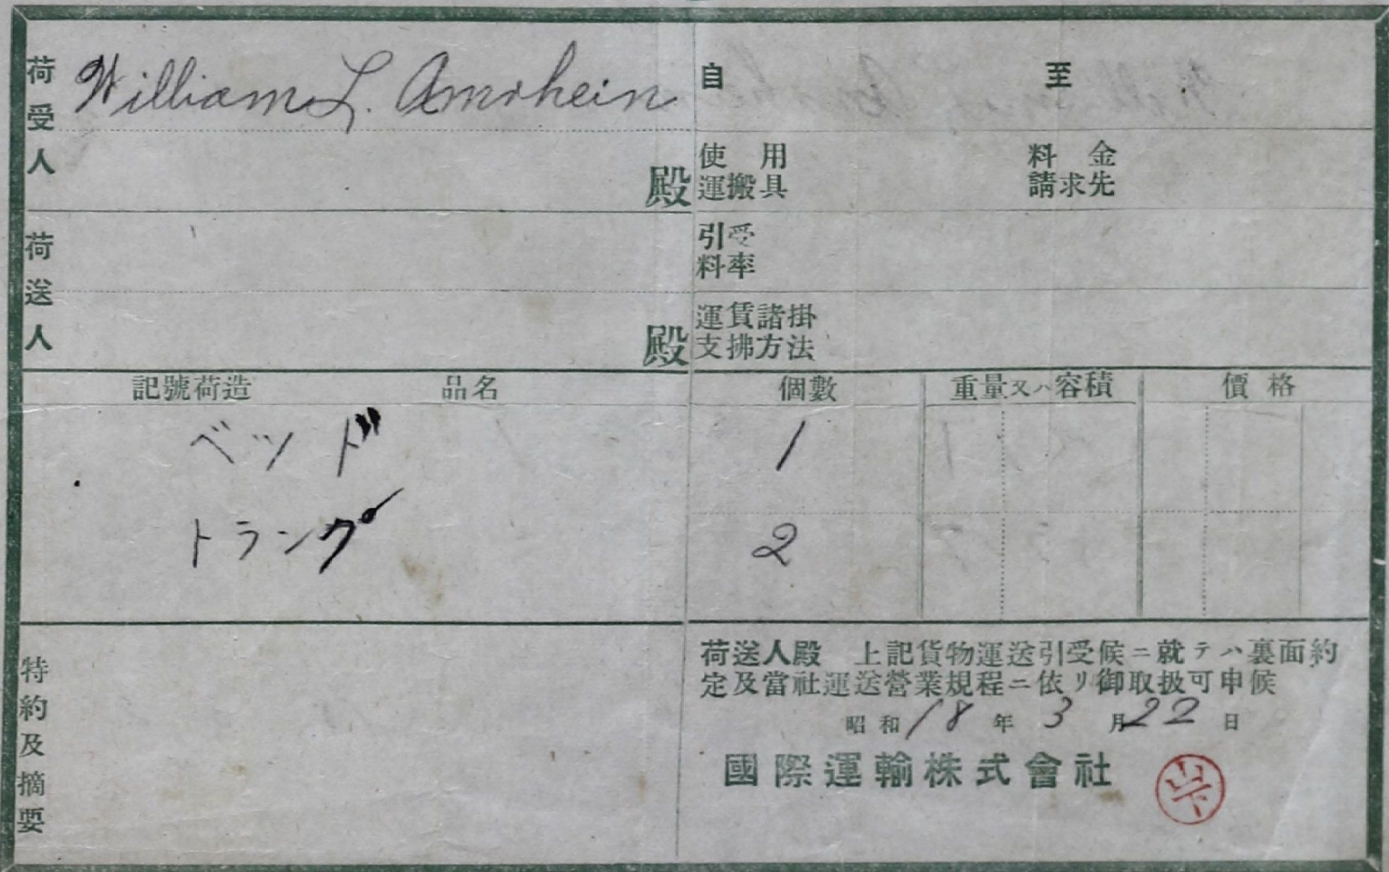 荷受人 William L. Amrhein 殿
自 至
使用運搬具 料金請求先
荷送人 殿
引受料率
運賃諸掛支拂方法
記號荷造 品名 個數 重量又ハ容積 價格
ベッド 1
トランク 2
特約及摘要
荷送人殿 上記貨物運送引受候ニ就テハ裏面約
定及當社運送營業規程ニ依リ御取扱可申候
昭和18年3月22日
國際運輸株式會社
山下